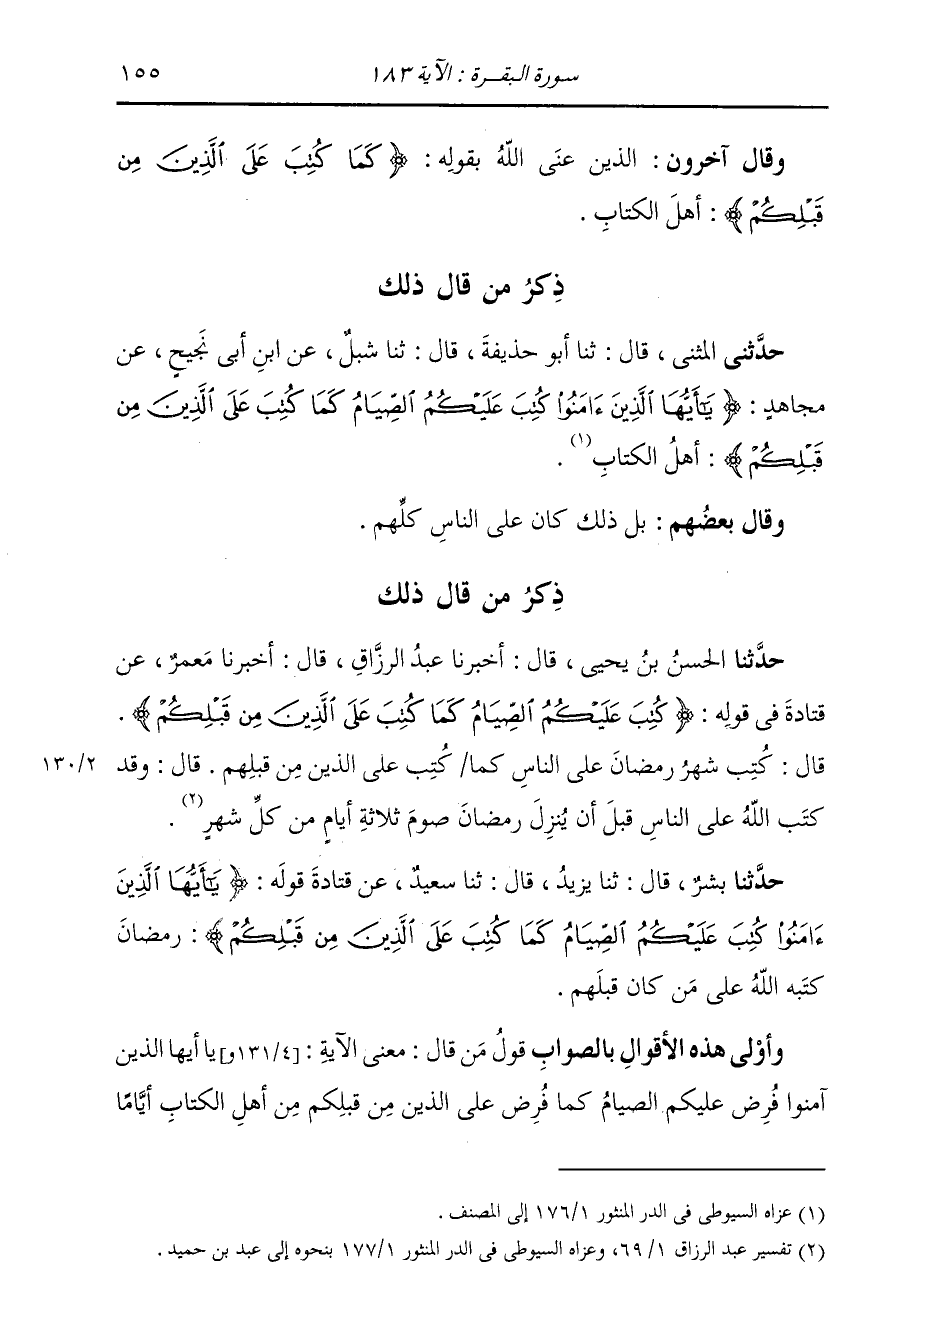 سورة البقرة : الآية ١٨٣ ١٥٥
وقال آخرون : الذين عنَى اللَّهُ بقولِه : ﴿ كَمَا كُتِبَ عَلَى ٱلَّذِينَ مِن
قَبْلِكُمْ ﴾ : أهلَ الكتابِ .
ذِكرُ من قال ذلك
حدَّثنى المثنى ، قال : ثنا أبو حذيفةَ ، قال : ثنا شبلٌ ، عن ابنِ أبى نَجيحٍ ، عن
مجاهدٍ : ﴿ يَٰٓأَيُّهَا ٱلَّذِينَ ءَامَنُوا۟ كُتِبَ عَلَيْكُمُ ٱلصِّيَامُ كَمَا كُتِبَ عَلَى ٱلَّذِينَ مِن
قَبْلِكُمْ ﴾ : أهلُ الكتابِ(١) .
وقال بعضُهم : بل ذلك كان على الناسِ كلِّهم .
ذِكرُ من قال ذلك
حدَّثنا الحسنُ بنُ يحيى ، قال : أخبرنا عبدُ الرزَّاقِ ، قال : أخبرنا مَعمرٌ ، عن
قتادةَ فى قولِه : ﴿ كُتِبَ عَلَيْكُمُ ٱلصِّيَامُ كَمَا كُتِبَ عَلَى ٱلَّذِينَ مِن قَبْلِكُمْ ﴾ .
قال : كُتِب شهرُ رمضانَ على الناسِ كما/ كُتِب على الذين مِن قبلِهم . قال : وقد ١٣٠/٢
كتَب اللَّهُ على الناسِ قبلَ أن يُنزِلَ رمضانَ صومَ ثلاثةِ أيامٍ من كلِّ شهرٍ(٢) .
حدَّثنا بشرٌ ، قال : ثنا يزيدُ ، قال : ثنا سعيدٌ ، عن قتادةَ قولَه : ﴿ يَٰٓأَيُّهَا ٱلَّذِينَ
ءَامَنُوا۟ كُتِبَ عَلَيْكُمُ ٱلصِّيَامُ كَمَا كُتِبَ عَلَى ٱلَّذِينَ مِن قَبْلِكُمْ ﴾ : رمضانَ
كتَبه اللَّهُ على مَن كان قبلَهم .
وأوْلى هذه الأقوالِ بالصوابِ قولُ مَن قال : معنى الآيةِ : [١٣١/٤و] يا أيها الذين
آمنوا فُرِض عليكم الصيامُ كما فُرِض على الذين مِن قبلِكم مِن أهلِ الكتابِ أيَّامًا
(١) عزاه السيوطى فى الدر المنثور ١٧٦/١ إلى المصنف .
(٢) تفسير عبد الرزاق ١/ ٦٩، وعزاه السيوطى فى الدر المنثور ١٧٧/١ بنحوه إلى عبد بن حميد .